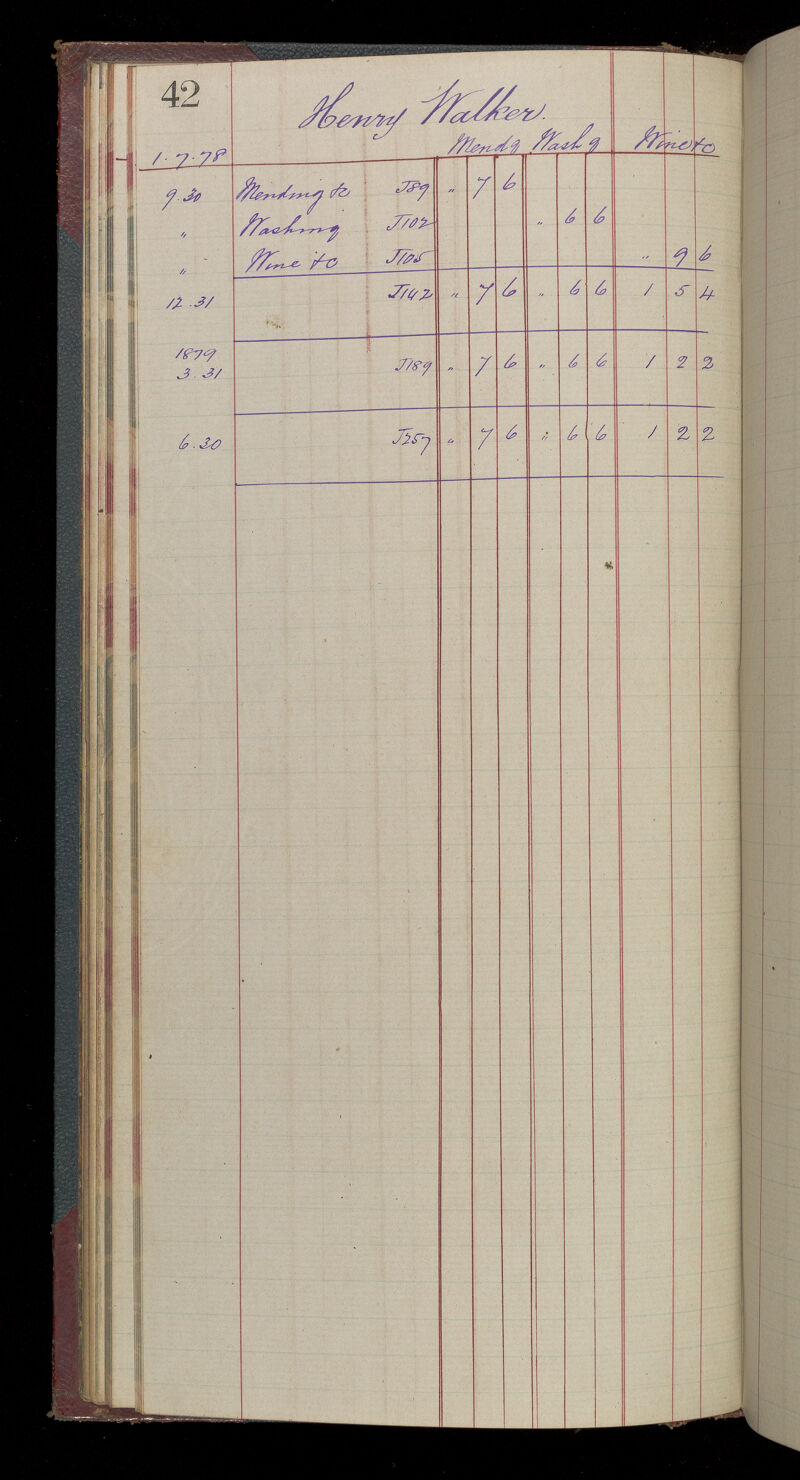 42
Henry Walker.
1.7.78 Mendg Washg Wine &c
9.30 Mending &c J89 " 7 6
" Washing J102 " 6 6
" Wine &c J105 " 9 6
12.31 J142 " 7 6 " 6 6 1 5 4
1879
3.31 J189 " 7 6 " 6 6 1 2 2
6.30 J257 " 7 6 " 6 6 1 2 2